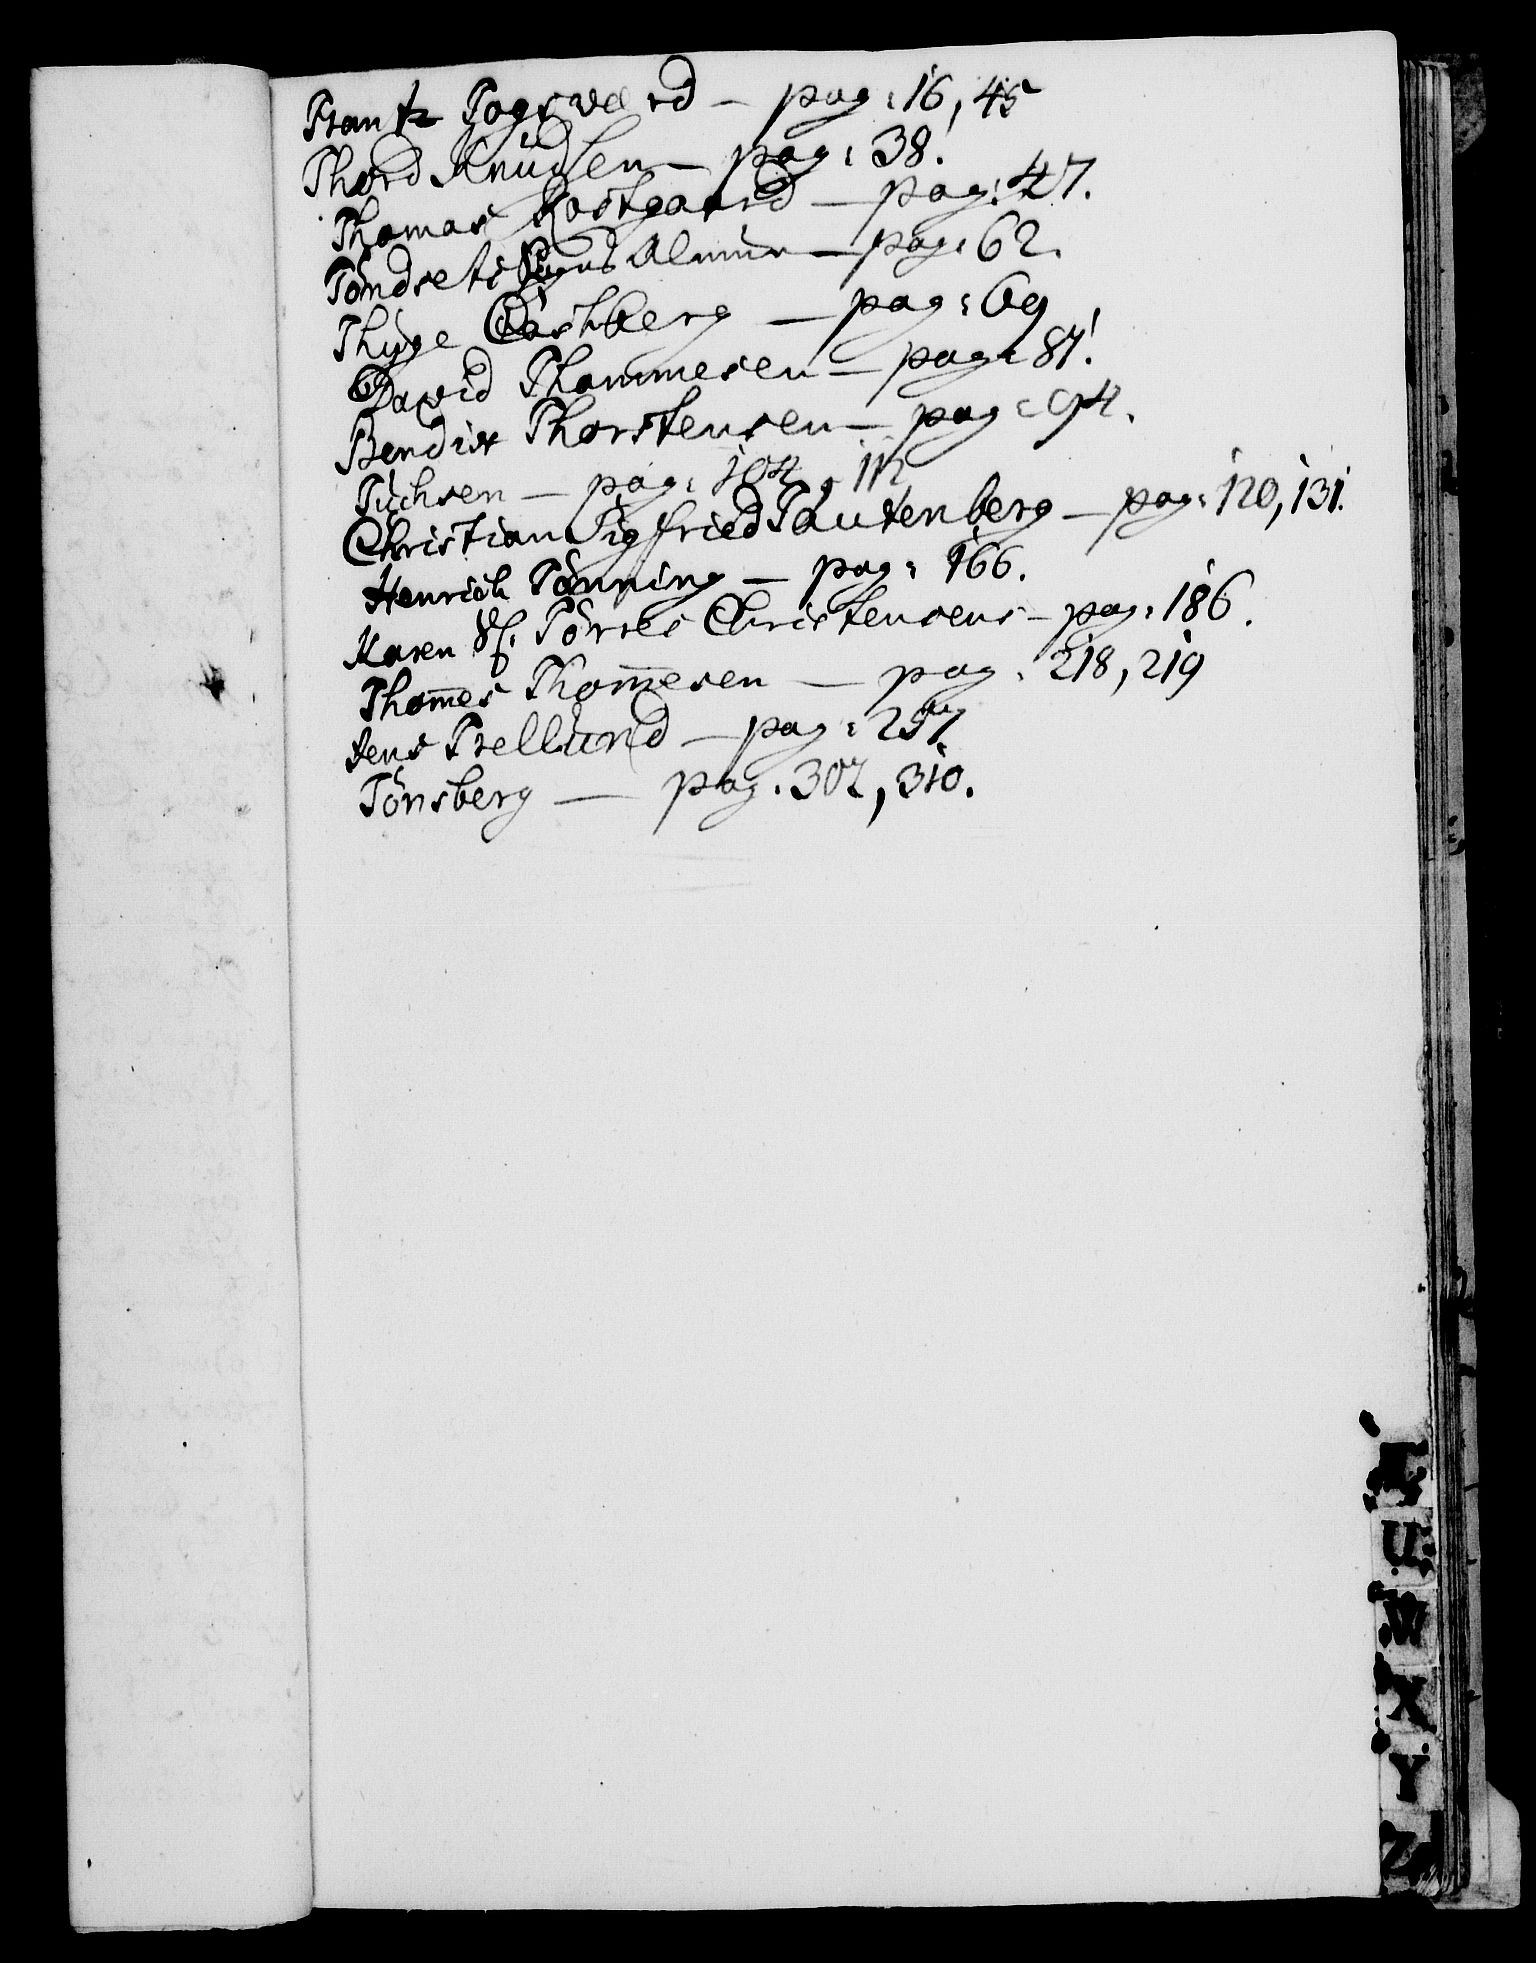 Frantz Togsværd – pag: 16, 45
Thord Knudsen – pag: 38.
Thomas Rostgaard – pag: 47.
Töndsets Almue – pag: 62.
Thyge Castberg – pag: 69
David Thommesen – pag: 87.
Bendix Thorstensen – pag: 94.
Tuchsen – pag: 104, 112
Christian Sigfried Tautenberg – pag: 120, 131.
Henrich Tönning – pag: 166.
Karen Sl. Törres Christensens – pag: 186.
Thom̄es Thom̄esen – pag: 218, 219
Jens Trellund – pag: 257
Tönsberg – pag. 302, 310.
U
W
X
Y
Z